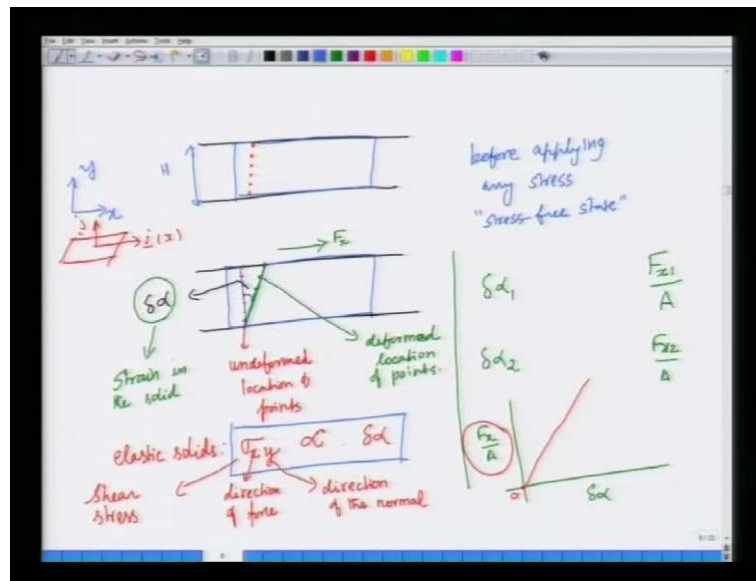 y
H
x
j
i (x)
before applying
any stress
"stress-free state"
Fx
δα
Strain in
the solid
undeformed
location of
points
deformed
location
of points.
δα1
Fx1/A
δα2
Fx2/A
Fx/A
0
δα
elastic solids: σxy ∝ δα
Shear
stress
direction
of force
direction
of the normal